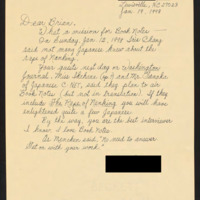 Louisville, KY 40223
Jan. 14, 1998
Dear Brian,
What a mission for Book Notes —
On Sunday, Jan. 12, 1998 Iris Chang
said not many Japanese knew about the
rape of Nanking.
Your guests next day on Washington
Journal, Miss
of Japanese C. NET, said they plan to air
Book Notes (but not in translation). If they
include The Rape of Nanking, you will have
enlightened quite a few Japanese.
By the way, you are the best interviewer
I know. I love Book Notes.
As Mencken said, "No need to answer.
Get on with your work."